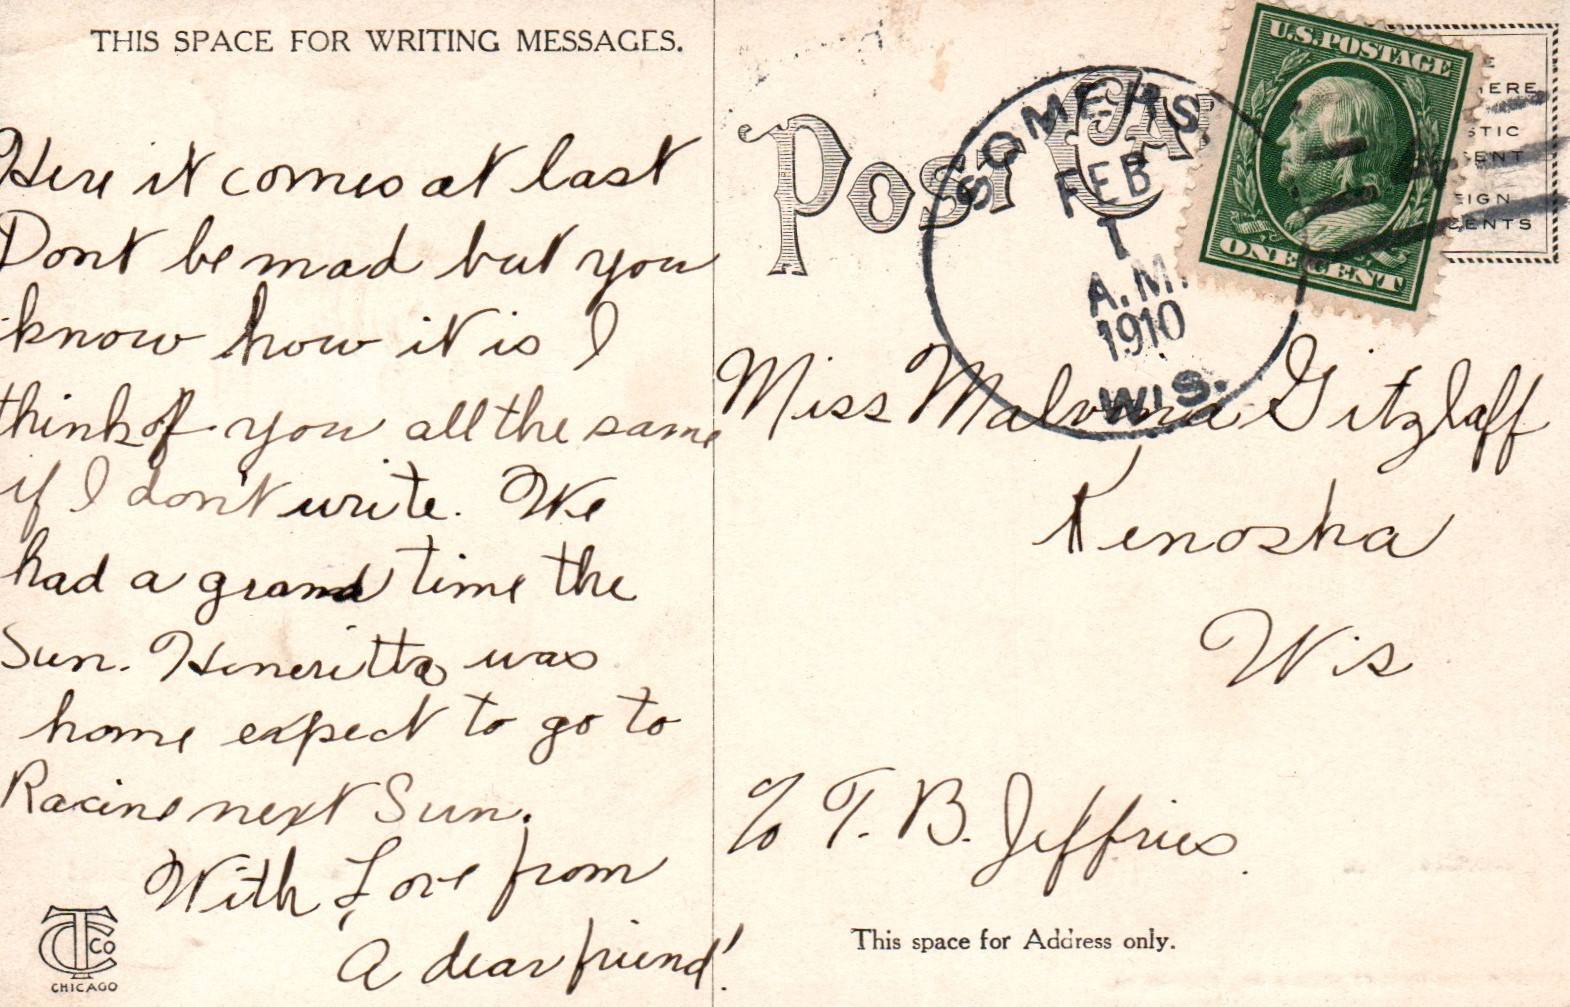 THIS SPACE FOR WRITING MESSAGES.
Here it comes at last
Dont be mad but you
know how it is I
think of you all the same
if I don't write. We
had a grand time the
Sun. Heneritta was
home expect to go to
Racine next Sun.
With Love from
A dear friend!
TC CO
CHICAGO
POST CA
SOMERS
FEB
1
A.M.
1910
WIS.
U.S. POSTAGE
ONE CENT
Miss Malvina Gitzlaff
Kenosha
Wis
c/o T. B. Jeffries.
This space for Address only.